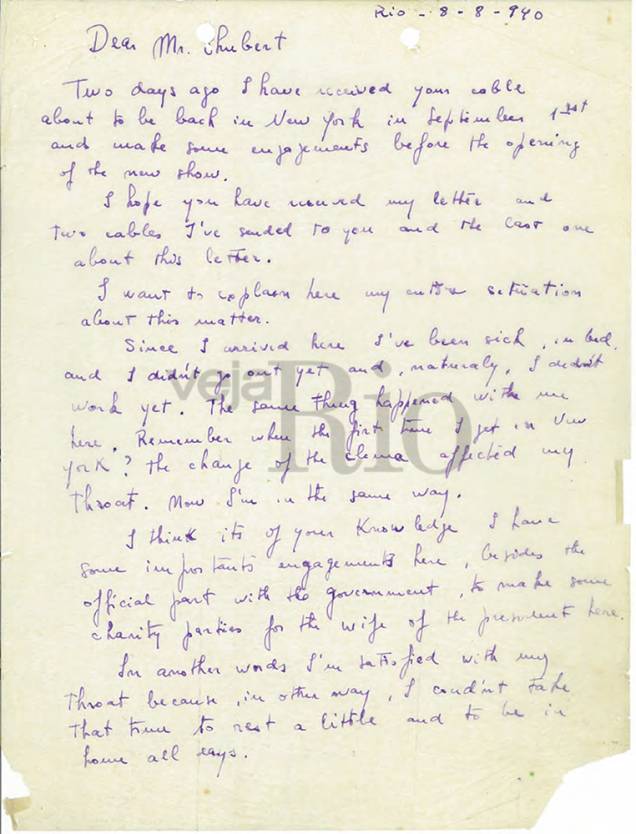 Rio - 8-8-940
Dear Mr. Shubert
Two days ago I have received your cable
about to be back in New York in September 1st
and make some engagements before the opening
of the new show.
I hope you have received my letter and
two cables I've sended to you and the last one
about this letter.
I want to explain here my entire setuation
about this matter.
Since I arrived here I've been sick, in bed,
and I didn't go out yet and, naturaly, I didn't
work yet. The same thing happened with me
here. Remember when the first time I get in New
York? The change of the clima affected my
throat. Now I'm in the same way.
I think its of your Knowledge I have
some importants engagements here, besides the
official part with the government, to make some
charity parties for the wife of the president here.
In another words I'm satisfied with my
throat because, in other way, I coudn't take
that time to rest a little and to be in
home all days.
veja Rio